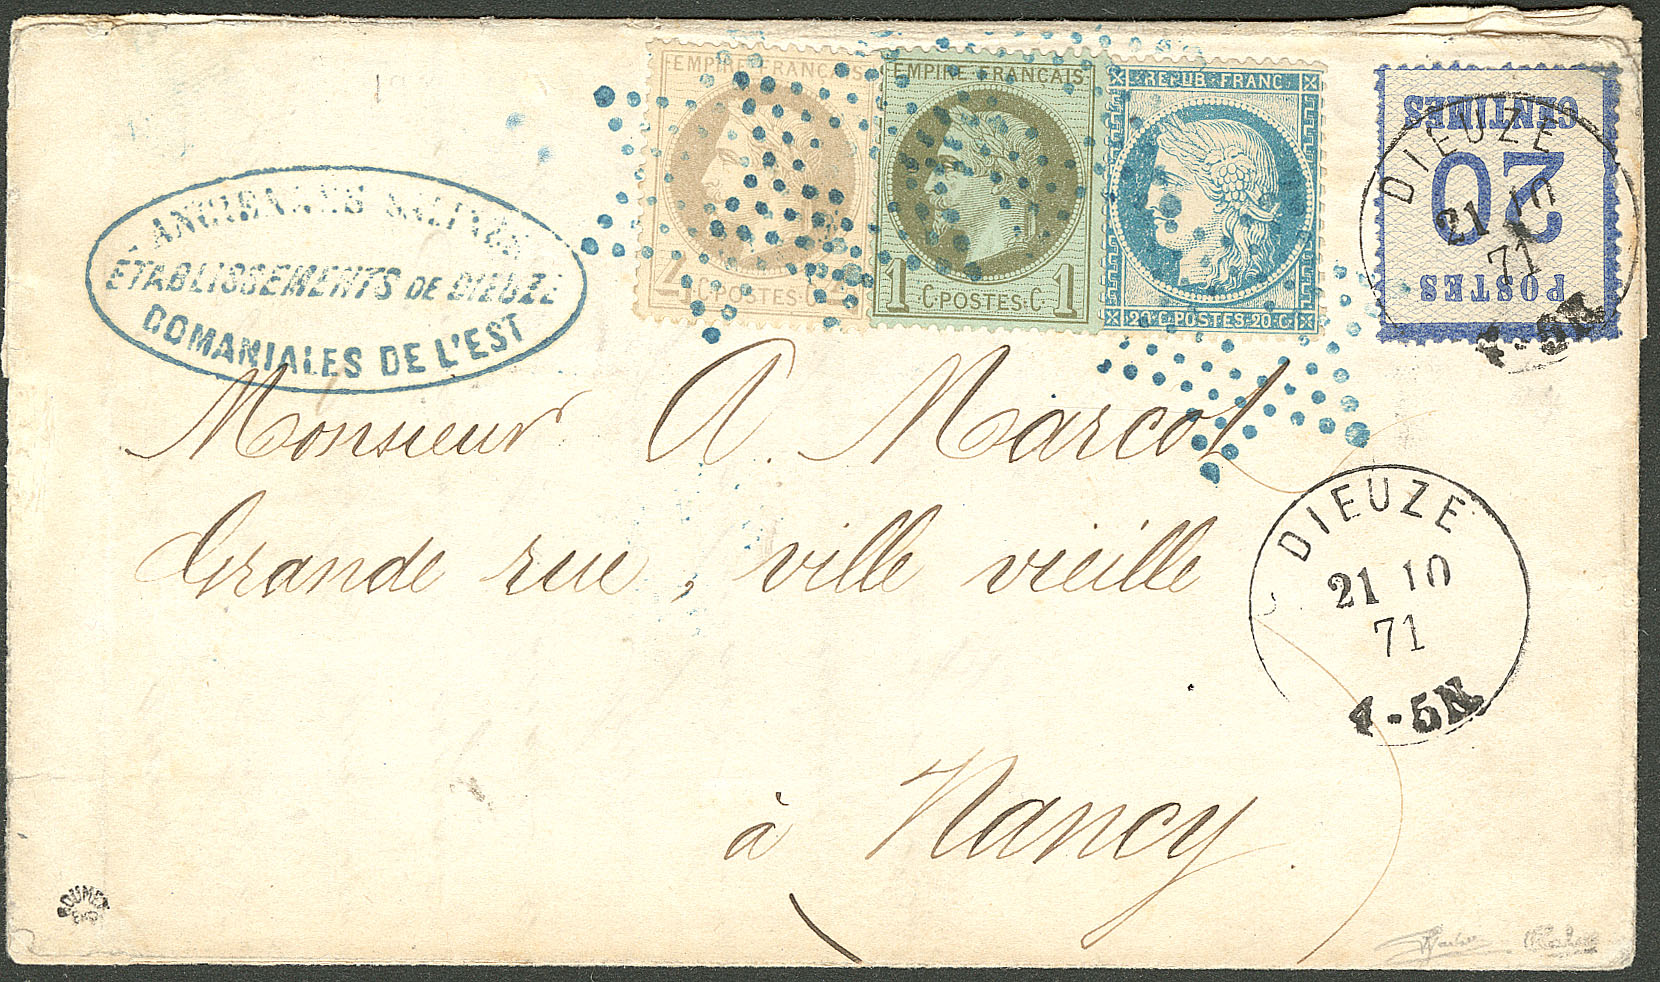 EMPIRE FRANCAIS
4 C·POSTES·C· 4
EMPIRE FRANCAIS
1 C·POSTES·C· 1
REPUB·FRANC·
20·C·POSTES·20·C·
POSTES
20
CENTIMES
DIEUZE
21 10
71
4-5N
ANCIENNES SALINES
ETABLISSEMENTS DE DIEUZE
DOMANIALES DE L'EST
Monsieur A. Marcot
Grande rue, ville vieille
à Nancy
DIEUZE
21 10
71
4-5N
ROUMET
EXP